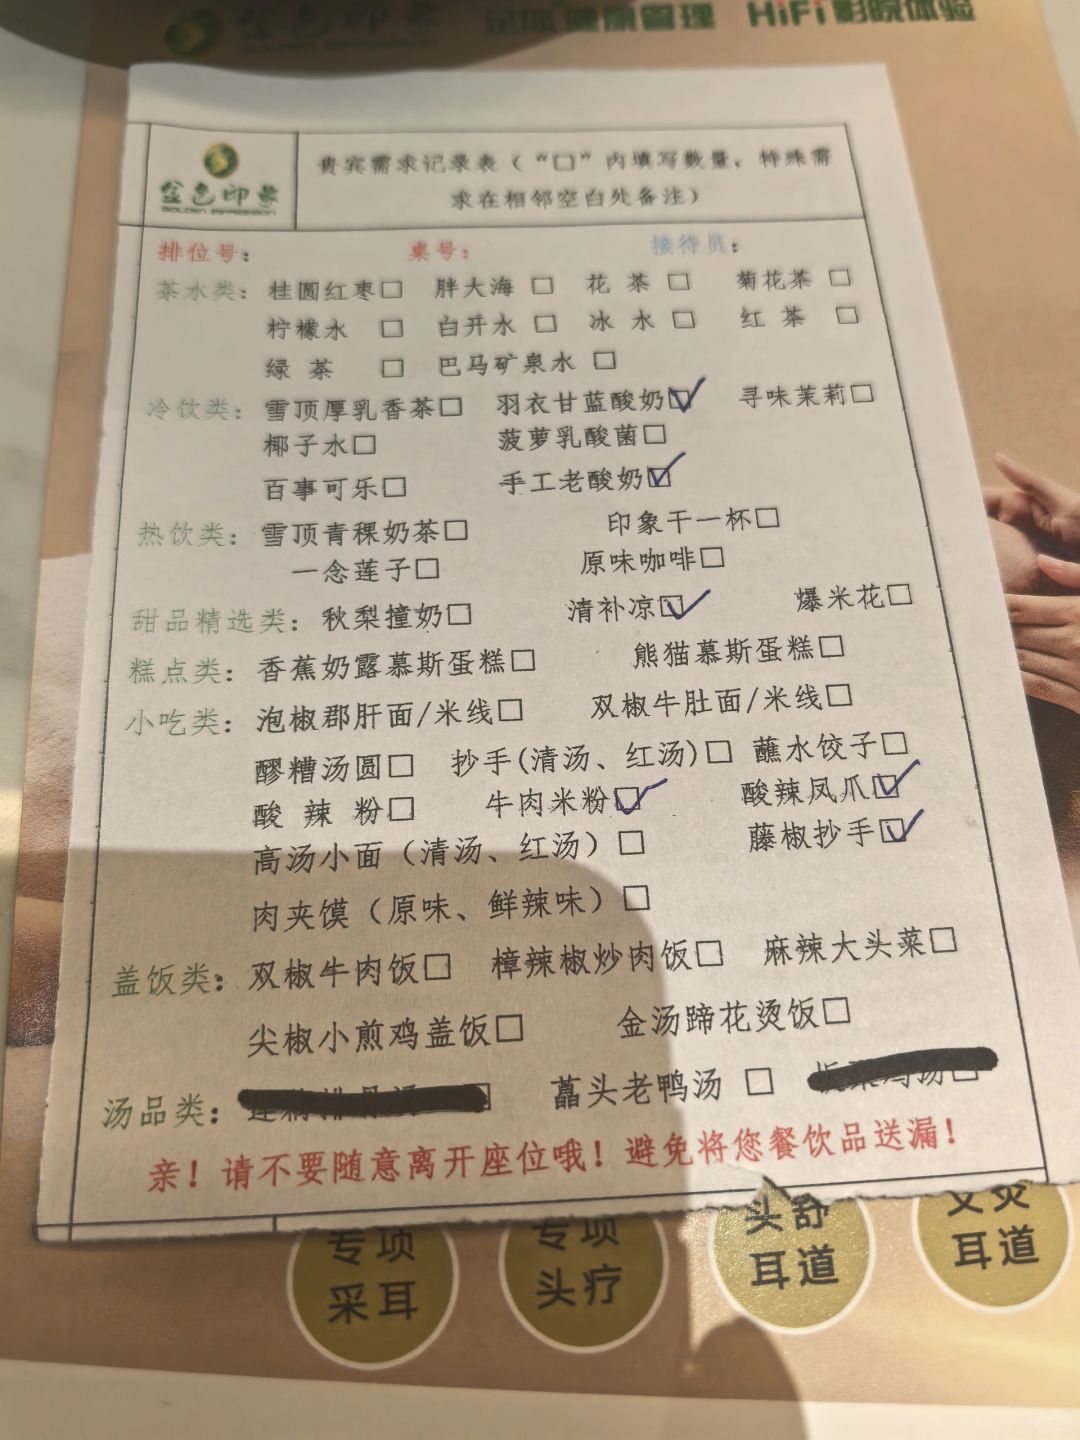 金色印象 足体 健康管理 HiFi影院体验
金色印象
GOLDEN IMPRESSION
贵宾需求记录表（“□”内填写数量，特殊需
求在相邻空白处备注）
排位号： 桌号： 接待员：
茶水类：桂圆红枣□ 胖大海□ 花茶□ 菊花茶□
柠檬水□ 白开水□ 冰水□ 红茶□
绿茶□ 巴马矿泉水□
冷饮类：雪顶厚乳香茶□ 羽衣甘蓝酸奶☑ 寻味茉莉□
椰子水□ 菠萝乳酸菌□
百事可乐□ 手工老酸奶☑
热饮类：雪顶青稞奶茶□ 印象干一杯□
一念莲子□ 原味咖啡□
甜品精选类：秋梨撞奶□ 清补凉☑ 爆米花□
糕点类：香蕉奶露慕斯蛋糕□ 熊猫慕斯蛋糕□
小吃类：泡椒郡肝面/米线□ 双椒牛肚面/米线□
醪糟汤圆□ 抄手(清汤、红汤)□ 蘸水饺子□
酸辣粉□ 牛肉米粉☑ 酸辣凤爪☑
高汤小面（清汤、红汤）□ 藤椒抄手☑
肉夹馍（原味、鲜辣味）□
盖饭类：双椒牛肉饭□ 樟辣椒炒肉饭□ 麻辣大头菜□
尖椒小煎鸡盖饭□ 金汤蹄花烫饭□
汤品类： 藠头老鸭汤□
亲！请不要随意离开座位哦！避免将您餐饮品送漏！
专项 专项 头舒 艾灸
采耳 头疗 耳道 耳道